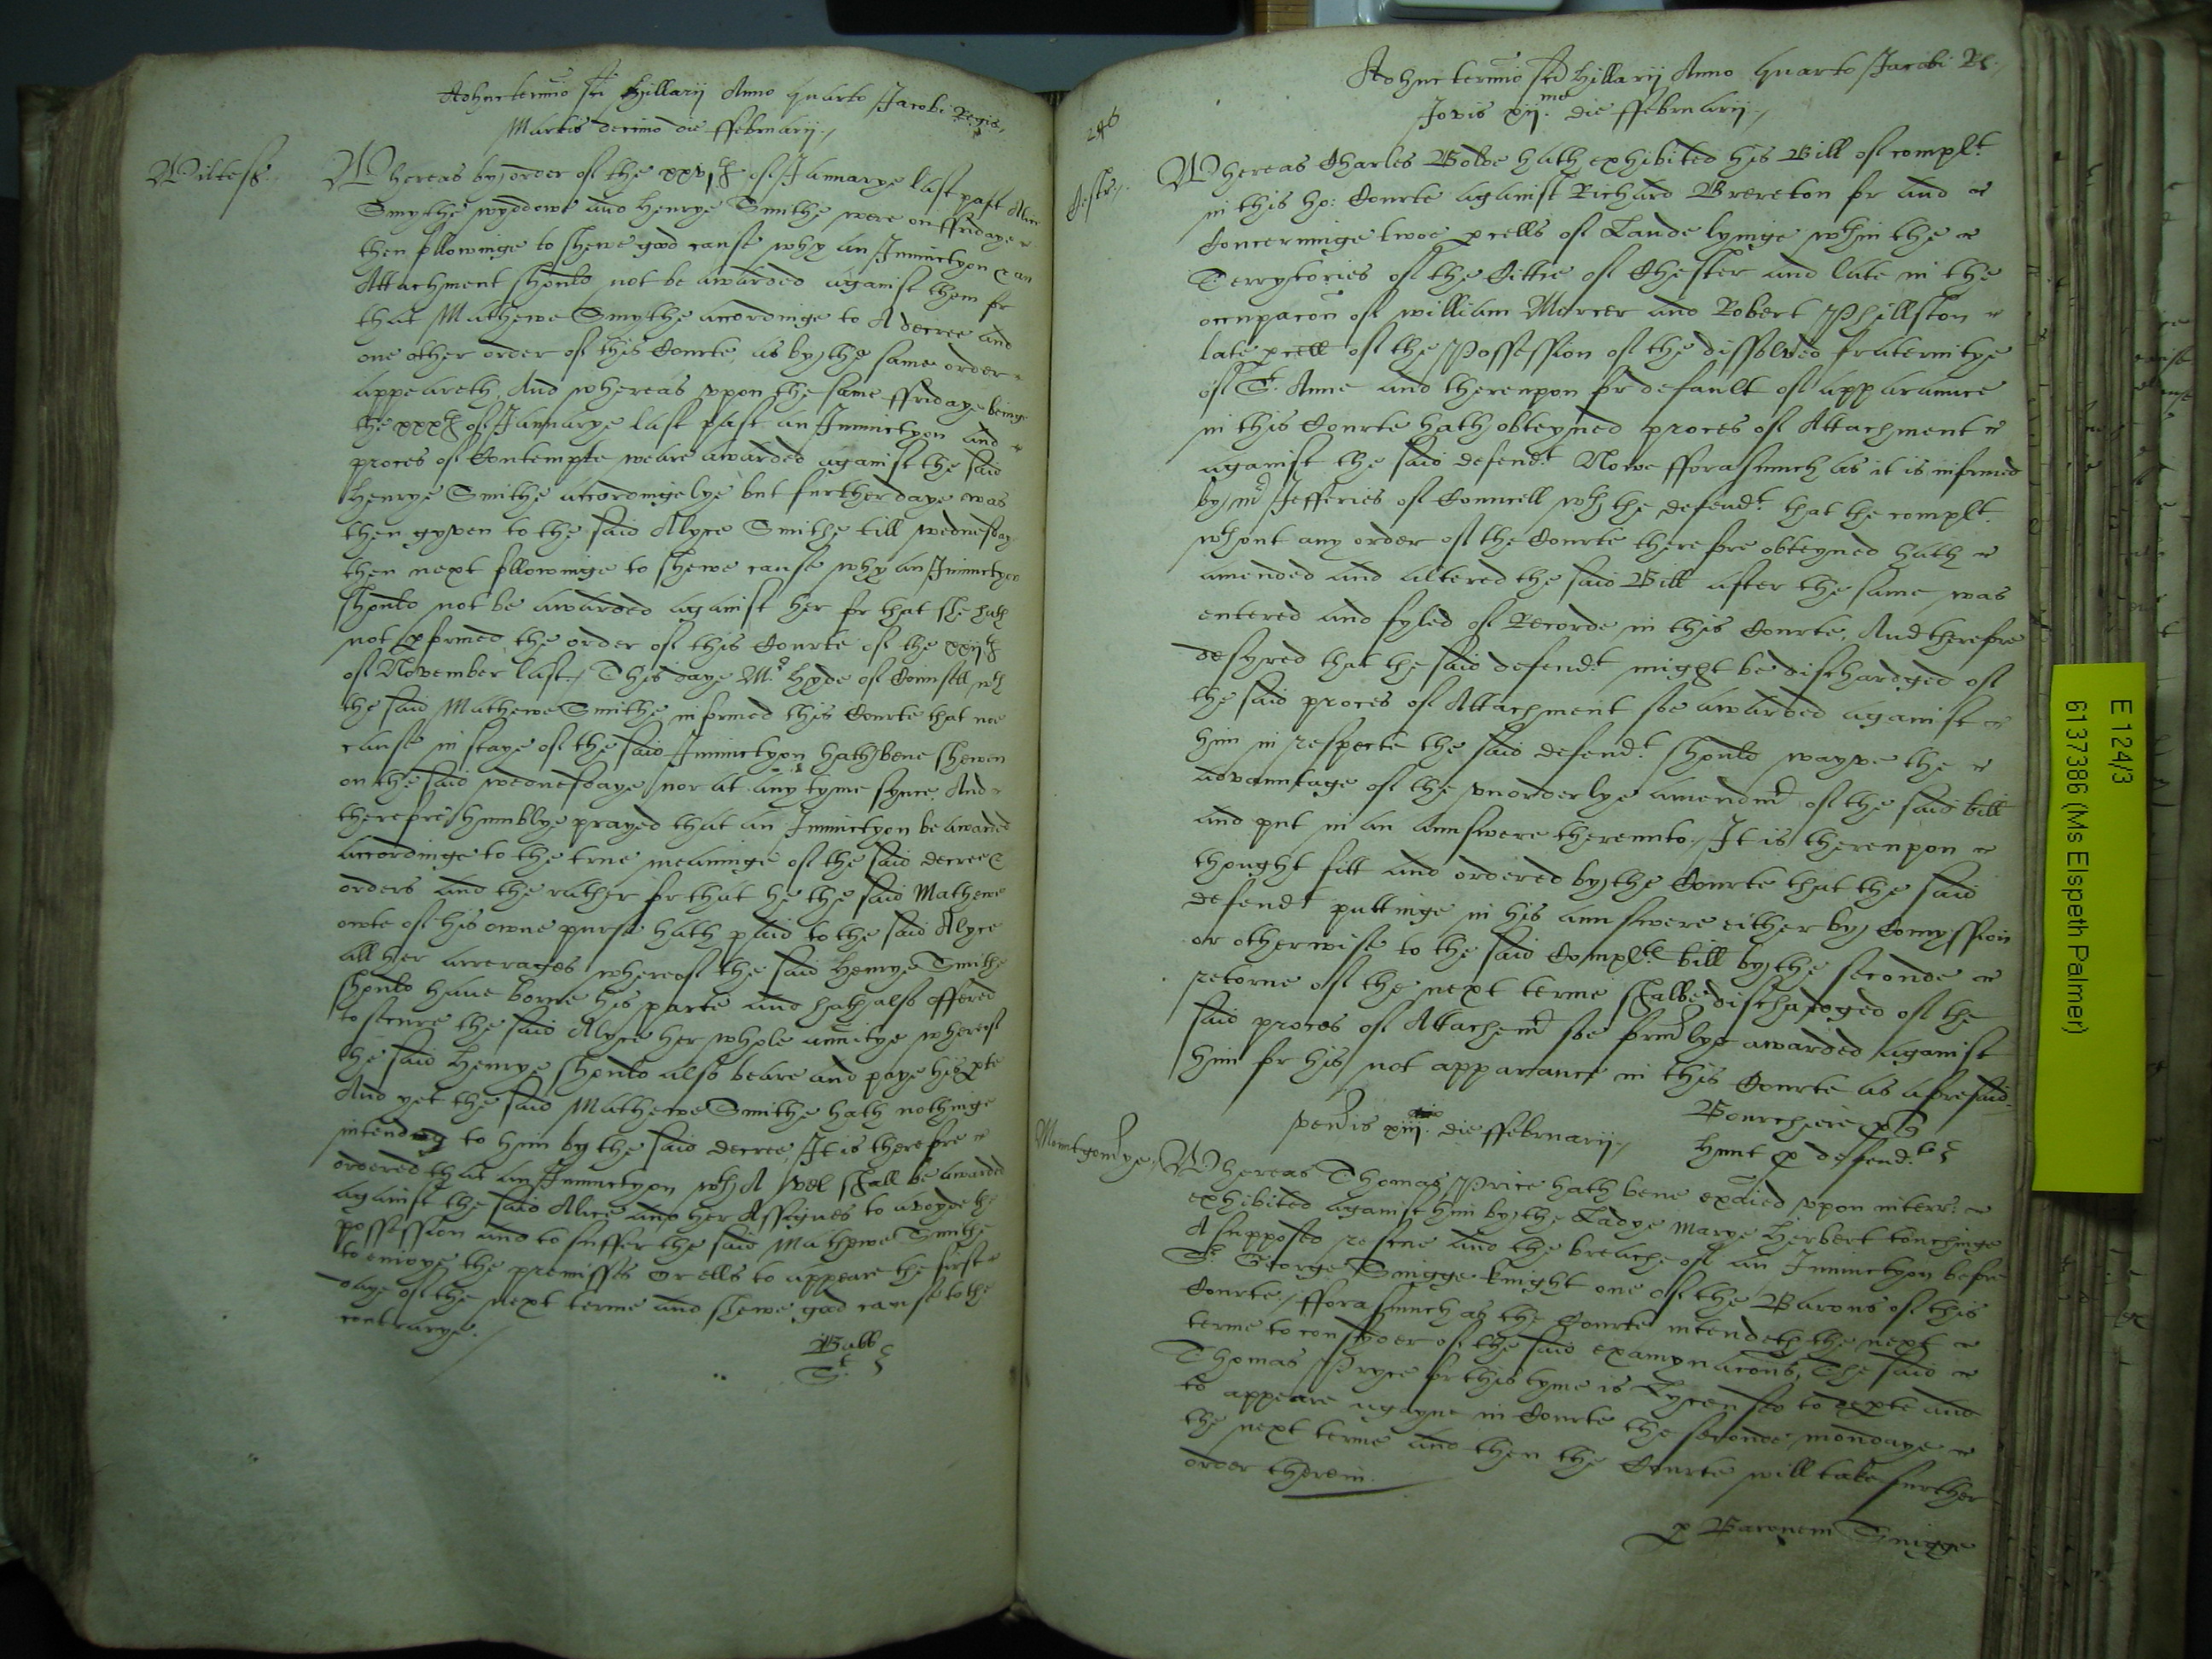 Adhuc termio sci Hillarij Anno quarto Jacobi Regis
Martis decimo die ffebruarij
Wiltess
Whereas by order of the xxvjth of Januarye last past Alice
Smythe wyddowe and Henrye Smithe were on ffridaye
then followinge to shewe good cause why an Iniunctyon & an
Attachment should not be awarded against them for
that Mathewe Smythe accordinge to A decree and
one other order of this Courte, as by the same order
appeareth, And whereas vpon the same ffridaye beinge
the xxxth of Januarye last past an Iniunctyon and
proces of Contempte weare awarded against the said
Henrye Smithe accordingelye but further daye was
then gyven to the said Alyce Smithe till wednesday
then next followinge to shewe cause why an Iniunctyon
should not be awarded against her for that she hath
not pformed the order of this Courte of the xxijth
of November last, This daye Mr Hyde of Counsell wth
the said Mathewe Smithe informed this Courte that noe
cause in staye of the said Iniunctyon hath bene shewen
on the said wednesdaye nor at any tyme synce, And
therefore humblye prayed that an Iniunctyon be awarded
accordinge to the true meaninge of the said decree &
orders and the rather for that he the said Mathewe
owte of his owne purse hath paid to the said Alyce
all her arrerages whereof the said Henrye Smithe
should haue borne his parte and hath also offered
to secure the said Alyce her whole annuitye whereof
the said Henrye should also beare and paye his pte
And yet the said Mathewe Smithe hath nothinge
intending to him by the said decree, It is therefore
ordered that an Iniunctyon wth A vel shall be awarded
against the said Alice and her Assignes to avoyde the
possession and to suffer the said Mathewe Smithe
to enioye the premisses Or ells to appeare the first
daye of the next terme and shewe good cause to the
contrarye.
Babb
St
246
Adhuc termio sci Hillarij Anno quarto Jacobi R
Jovis xijmo die ffebruarij
Cestr
Whereas Charles Bolde hath exhibited his Bill of complt
in this ho: Courte against Richard Brereton for and
Concerninge twoe pcells of Lande lyinge wthin the
Terrytories of the Cittie of Chester and late in the
occupacon of william Mercer and Robert Phillston
late pcell of the Possession of the dissolved fraternitye
of St. Anne and thereupon for default of apparaunce
in this Courte hath obteyned proces of Attachment
against the said defendt Nowe fforasmuch as it is informed
by mr Jefferies of Councell wth the defendt that the complt
wthout any order of the Courte therefore obteyned hath
amended and altered the said Bill after the same was
entered and fyled of Recorde in this Courte, And therefore
desyred that the said defendt might be dischardged of
the said proces of Attachment soe awarded against
him in respecte the said defendt should wayve the
advauntage of the vnorderlye amendmt of the said bill
and put in an aunswere thereunto, It is thereupon
thought fitt and ordered by the Courte that the said
defendt puttinge in his aunswere either by Comyssion
or otherwise to the said Complts bill by the seconde
retorne of the next terme shalbe dischardged of the
said proces of Attachemt soe formlye awarded against
him for his not apparance in this Courte as aforesaid.
Bourchiere p
Hunt p defendt
Venis xiij die ffebruarij
Mountgomrye
Whereas Thomas Price hath bene exaied vpon interr:
exhibited against him by the Ladye Marye Herbert touchinge
A supposed rescue and the breache of an Iniunctyon before
Sr George Snigge knight one of the Barons of this
Courte, fforasmuch as the Courte intendeth the next
terme to consyder of the said examynacons, The said
Thomas Pryce for this tyme is Lycensed to depte and
to appeare agayne in Courte the seconde mondaye
the next terme and then the Courte will take further
order therein.
p Baronem Snigge
E 124/3
6137386 (Ms Elspeth Palmer)